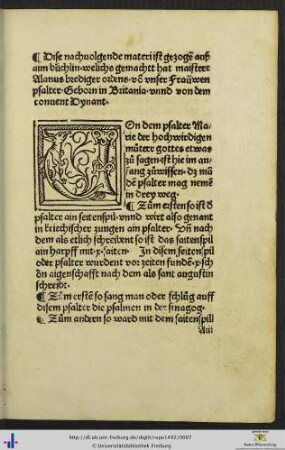 ¶ Dise nachuolgende materi ist gezogē auß
aim büchlin welichs gemacht hat maister
Alanus brediger ordens vō vnser Frawen
psalter Geborn in Britania vnnd von dem
conuent Dynant.
On dem psalter Ma
rie der hochwirdigen
müter gottes etwas
zū sagen ist hie im an
fang zůwissen dz mā
dē psalter mag nemē
in drey weg.
¶ Zūm ersten so ist d
psalter ain seitenspil vnnd wirt also genant
in kriechischer zungen ain psalter Vn̄ nach
dem als etlich schreibent so ist das saitenspil
ain harpff mit x saiten In disem seitenspil
oder psalter wurdent vor zeiten fundē x sch
aigenschafft nach dem als sant augustin
schreibt.
¶ Zūm erstē so sang man oder schlūg auff
disem psalter die psalmen in der sinagog.
¶ Zūm andern so ward mit dem saitenspill
Aiii
http://dl.ub.uni-freiburg.de/diglit/rupe1492/0007
© Universitätsbibliothek Freiburg